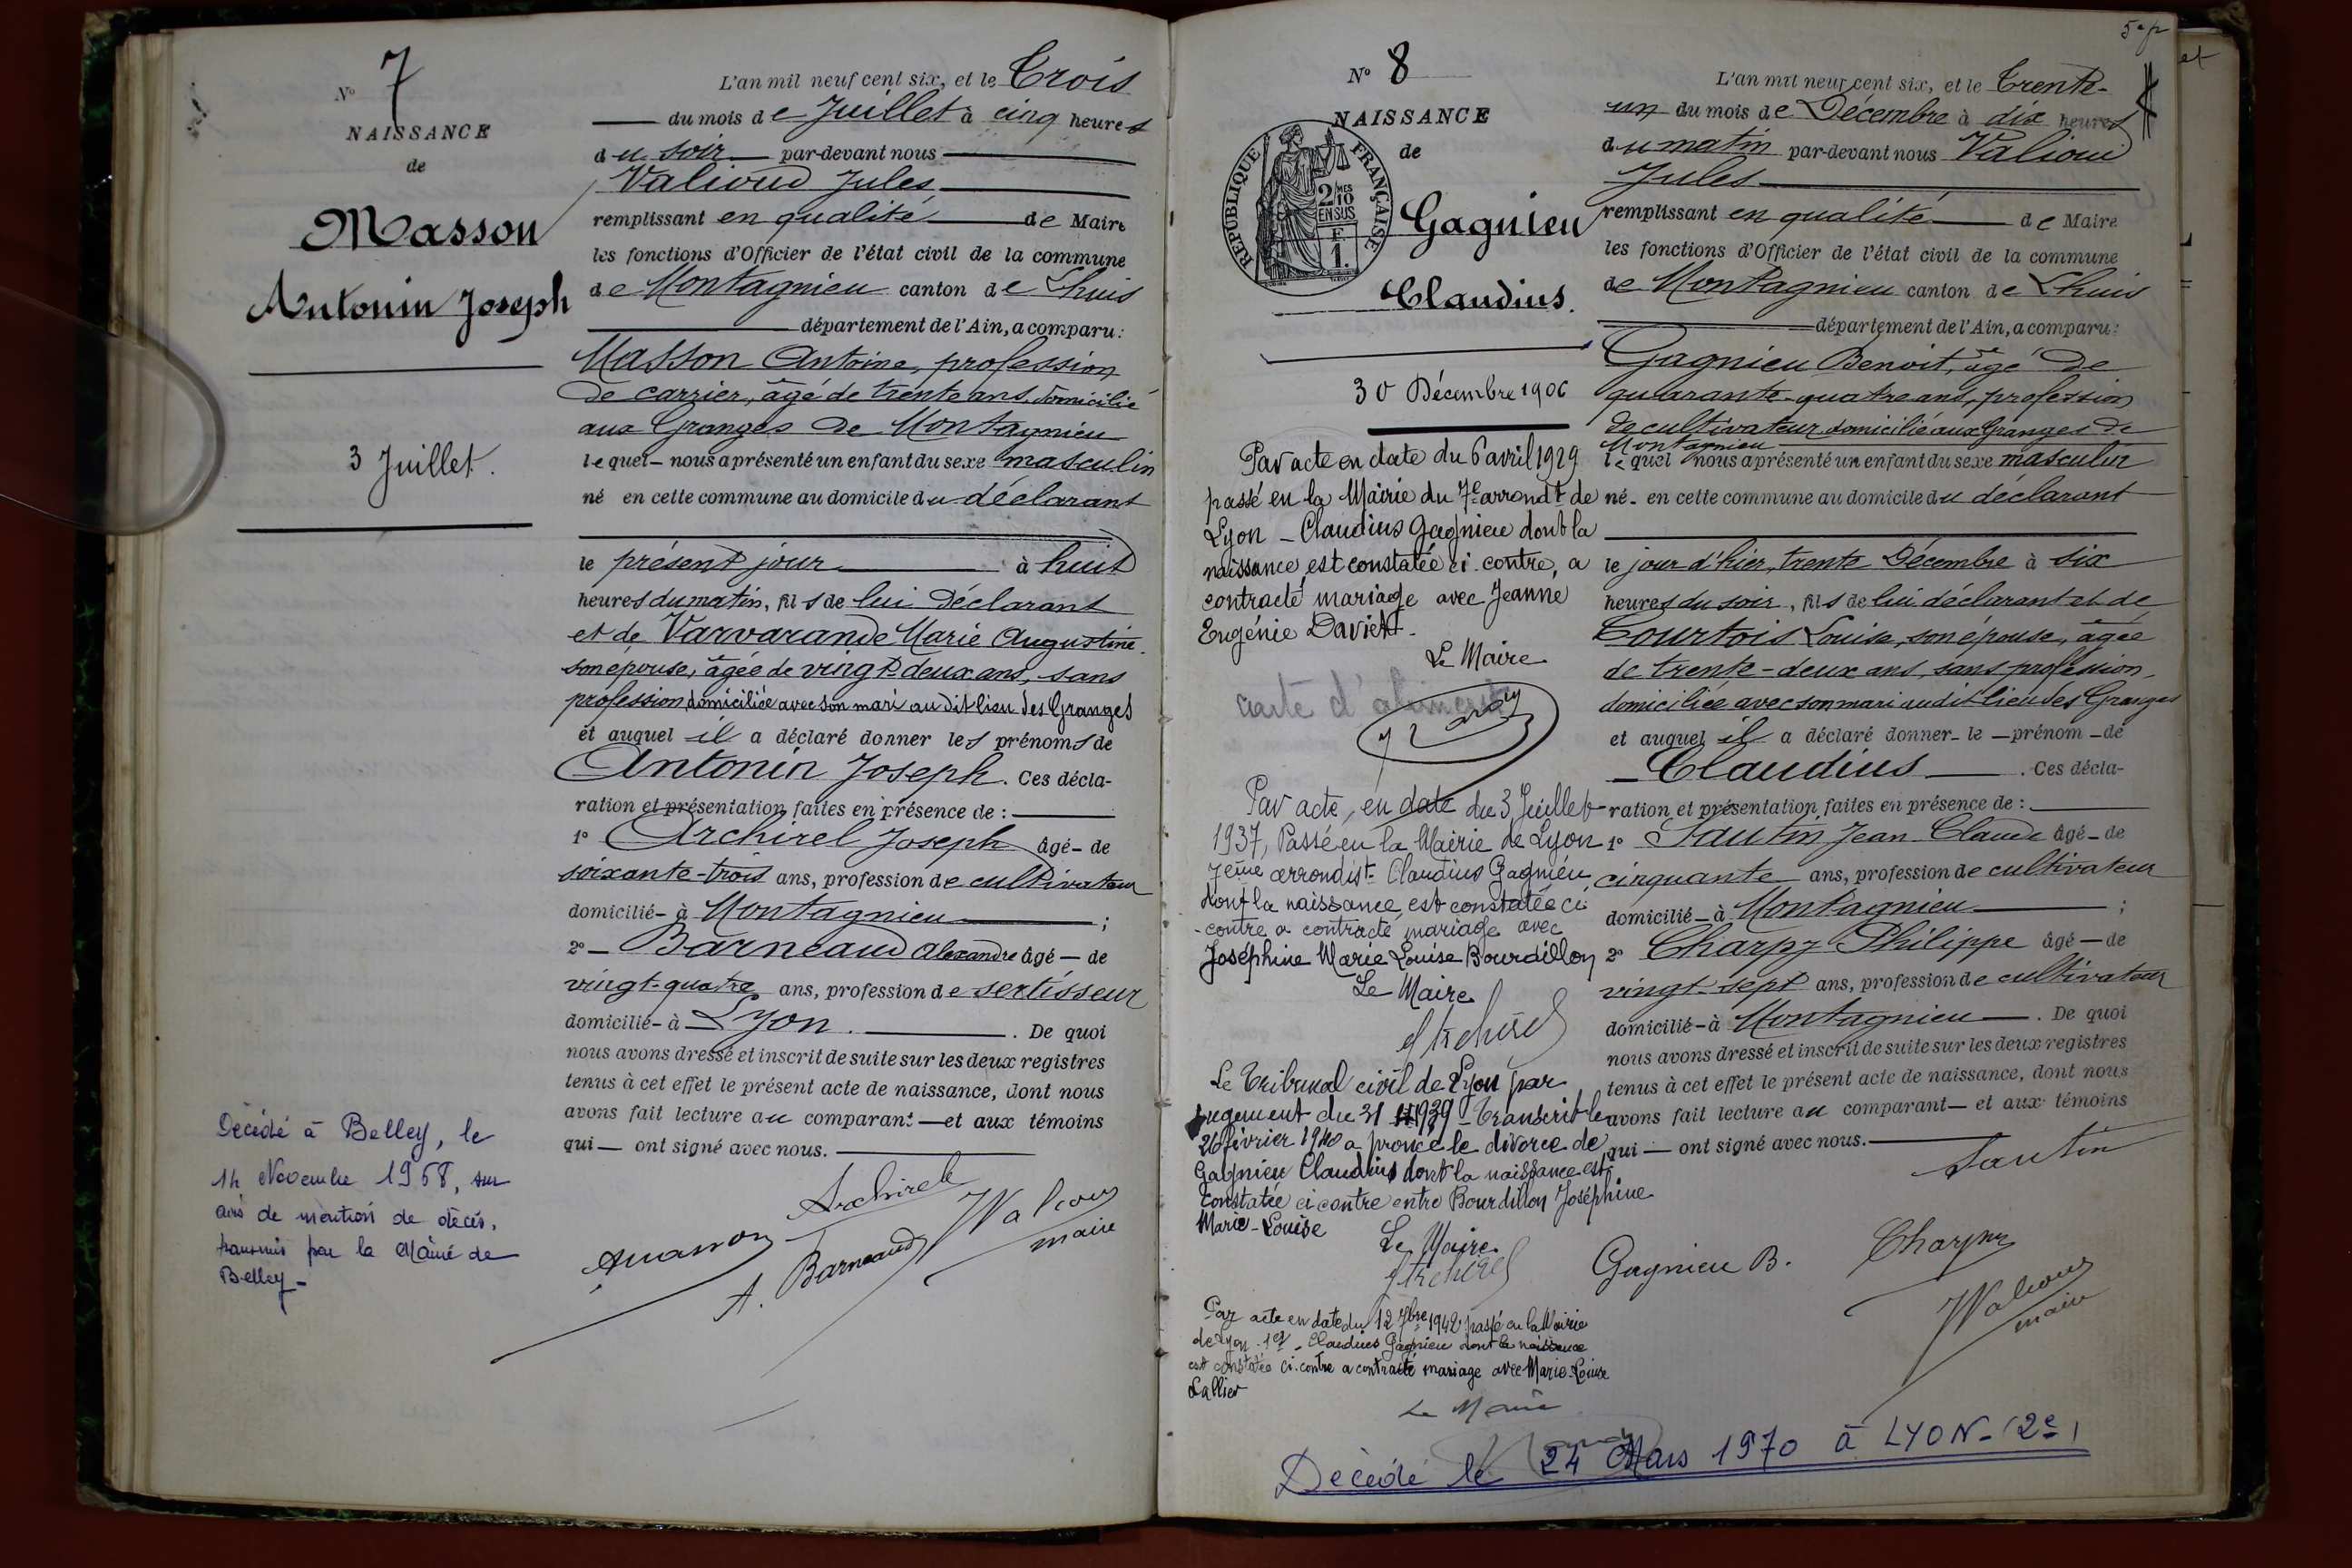 N° 7
NAISSANCE
de
Masson
Antonin Joseph
3 Juillet.
Décédé à Belley, le
14 Novembre 1968, sur
avis de mention de décès,
transmis par la Mairie de
Belley_
L'an mil neuf cent six, et le Trois
du mois de Juillet à cinq heures
du soir par-devant nous
Valioud Jules
remplissant en qualité de Maire
les fonctions d'Officier de l'état civil de la commune
de Montagnieu canton de Lhuis
département de l'Ain, a comparu:
Masson Antoine, profession
de carrier, âgé de trente ans, domicilié
aux Granges de Montagnieu
lequel nous a présenté un enfant du sexe masculin
né en cette commune au domicile du déclarant
le présent jour à huit
heures du matin, fils de lui Déclarant
et de Varvarande Marie Augustine
son épouse, âgée de vingt-deux ans, sans
profession, domiciliée avec son mari au dit lieu des Granges
et auquel il a déclaré donner les prénoms de
Antonin Joseph. Ces décla-
ration et présentation faites en présence de :
1° Archirel Joseph âgé - de
soixante-trois ans, profession de cultivateur
domicilié - à Montagnieu ;
2° - Barneaud Alexandre âgé - de
vingt-quatre ans, profession de sertisseur
domicilié - à Lyon. De quoi
nous avons dressé et inscrit de suite sur les deux registres
tenus à cet effet le présent acte de naissance, dont nous
avons fait lecture au comparant - et aux témoins
qui - ont signé avec nous.
Archirel
A. Barneaud
maire
5e p
N° 8
NAISSANCE
de
RÉPUBLIQUE FRANÇAISE
2 MES
10
EN SUS
F
1.
Gagnieu
Claudius.
30 Décembre 1906
Par acte en date du 6 avril 1929
passé en la Mairie du 7e arrondt de
Lyon - Claudius Gagnieu dont la
naissance est constatée ci-contre, a
contracté mariage avec Jeanne
Eugénie
Le Maire
carte d'aliment
Par acte, en date du 3 Juillet
1937, Passé en la Mairie de Lyon
7ème arrondist Claudius Gagnieu
dont la naissance est constatée ci
-contre a contracté mariage avec
Joséphine Marie Louise Bourdillon
Le Maire
Archirel
Le Tribunal civil de Lyon par
jugement du 31 1939 - Transcrit le
26 février 1940 a prononcé le divorce de
Gagnieu Claudius dont la naissance est
constatée ci contre entre Bourdillon Joséphine
Marie-Louise
Le Maire
Archirel
Par acte en date du 12 7bre 1942 passé en la Mairie
de Lyon 1er - Claudius Gagnieu dont la naissance
est constatée ci-contre a contracté mariage avec Marie-Louise
Lallier
Le Maire
Décédé le 24 Mars 1970 à LYON-(2e)
L'an mil neuf cent six, et le Trente-
un du mois de Décembre à dix heures
du matin par-devant nous Valioud
Jules
remplissant en qualité de Maire
les fonctions d'Officier de l'état civil de la commune
de Montagnieu canton de Lhuis
département de l'Ain, a comparu:
Gagnieu Benoit, âgé de
quarante-quatre ans, profession
de cultivateur domicilié aux Granges de
Montagnieu
lequel nous a présenté un enfant du sexe masculin
né - en cette commune au domicile du déclarant
le jour d'hier, trente Décembre à six
heures du soir, fils de lui déclarant et de
Courtois Louise, son épouse, âgée
de trente-deux ans, sans profession,
domiciliée avec son mari au dit lieu des Granges
et auquel il a déclaré donner - le - prénom - de
Claudius. Ces décla-
ration et présentation faites en présence de :
1° Sautin Jean-Claude âgé - de
cinquante ans, profession de cultivateur
domicilié - à Montagnieu ;
2° Charpy Philippe âgé - de
vingt-sept ans, profession de cultivateur
domicilié - à Montagnieu. De quoi
nous avons dressé et inscrit de suite sur les deux registres
tenus à cet effet le présent acte de naissance, dont nous
avons fait lecture au comparant - et aux témoins
qui - ont signé avec nous.
Sautin
Gagnieu B.
Charpy
maire
et